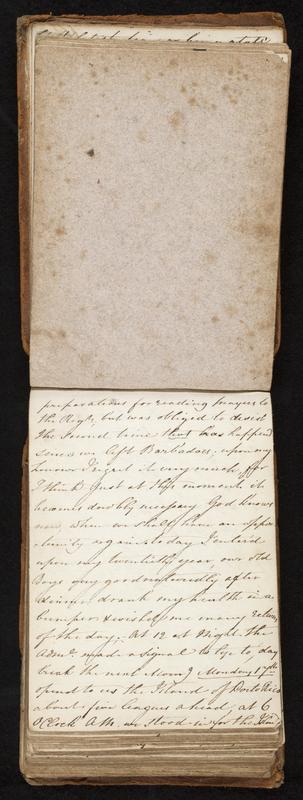 preparations for reading prayers to
the Regt, but was obliged to desist
the second time that has happend
since we left Barbadoes, upon my
honour I regret it very much, for
I think just at this moment it
becomes doubly necessary God knows
now, when we shall have an oppor
=tunity again. to day I entered
upon my twentieth year, our old
Boys very goodnaturedly after
dinner drank my health in a
bumper & wished me many returns
of the day. At 12 at Night the
Adml. made a signal to lye to day
break the next Morng. Monday 17th
opened to us the Island of Porto Rico
about five leagues ahead, at 6
OClock AM. we stood in for the